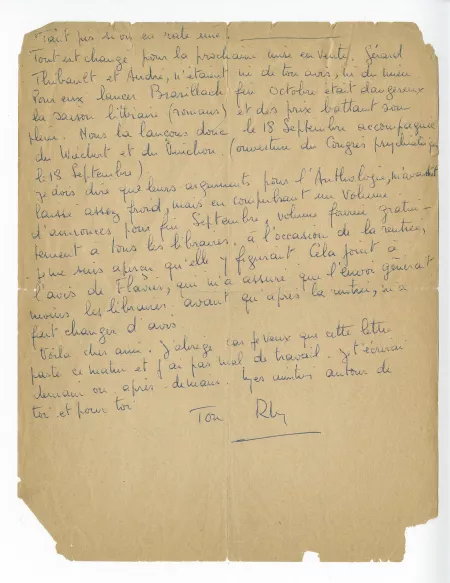 fait pas si on en rate une.
Tout est changé pour la prochaine mise en vente. Gérard
Thibault et André, n'étaient ni de ton avis, ni du mien
Pour eux lancer Brasillach fin Octobre était dangereux
la saison littéraire (romans) et des prix battant son
plein. Nous la lançons donc le 18 Septembre accompagnée
du et du (ouverture du Congrès psychiatrique
le 18 Septembre)
je dois dire que leurs arguments pour l'Anthologie, m'avaient
laissé assez froid, mais en compulsant un volume
d'annonces pour fin Septembre, volume fourni gratui-
tement à tous les libraires, à l'occasion de la rentrée,
je me suis aperçu qu'elle y figurait. Cela joint à
l'avis de Flavius, qui m'a assuré que l'envoi gênerait
moins les libraires avant qu'après la rentrée, m'a
fait changer d'avis.
Voilà cher ami. J'abrège car je veux que cette lettre
parte ce matin et j'ai pas mal de travail. Je t'écrirai
demain ou après-demain. Mes amitiés autour de
toi et pour toi
Ton